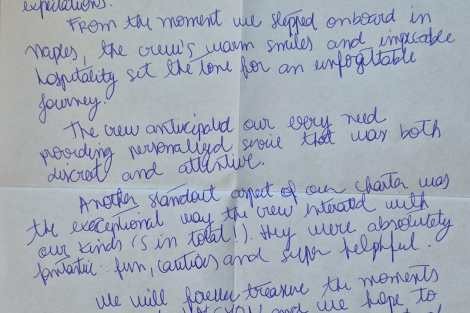 expectations.
From the moment we stepped onboard in
Naples, the crew's warm smiles and impeccable
hospitality set the tone for an unforgettable
journey.
The crew anticipated our every need
providing personalized service that was both
discreet and attentive.
Another standout aspect of our charter was
the exceptional way the crew interacted with
our kinds (5 in total!). They were absolutely
fantastic: fun, cautious and super helpful.
We will forever treasure the moments
and we hope to